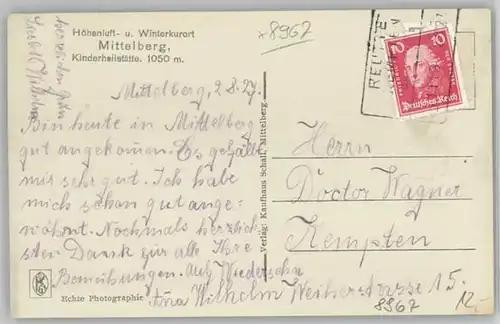 *8967
Höhenluft- u. Winterkurort
Mittelberg,
Kinderheilstätte. 1050 m.
REUTTE
10 10
Deutsches Reich
herzlichen Gruß
Wilhelm
Mittelberg, 2.8.27.
Bin heute in Mittelberg
gut angekommen. Es gefällt
mir sehr gut. Ich habe
mich schon gut ange-
wöhnt. Nochmals herzlich-
sten Dank für alle Ihre
Bemühungen. Auf Wiedersehn
Wilhelm Weiherstrasse 15.
Verlag: Kaufhaus Schall, Mittelberg.
Herrn
Doctor Wagner
Kempten
8967
12,-
Echte Photographie